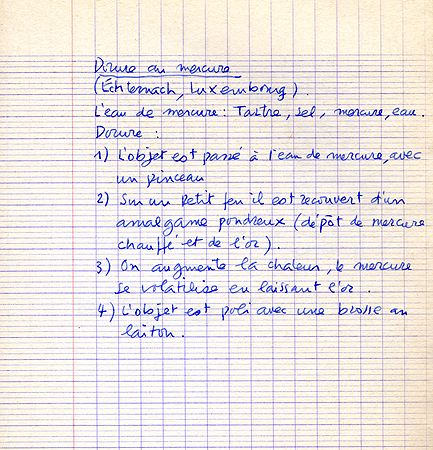 Dorure au mercure
(Echternach, Luxembourg).
L'eau de mercure: Tartre, sel, mercure, eau.
Dorure :
1) L'objet est passé à l'eau de mercure, avec
un pinceau
2) Sur un petit feu il est recouvert d'un
amalgame poudreux (dépôt de mercure
chauffé et de l'or).
3) On augmente la chaleur, le mercure
se volatilise en laissant l'or.
4) L'objet est poli avec une brosse au
laiton.